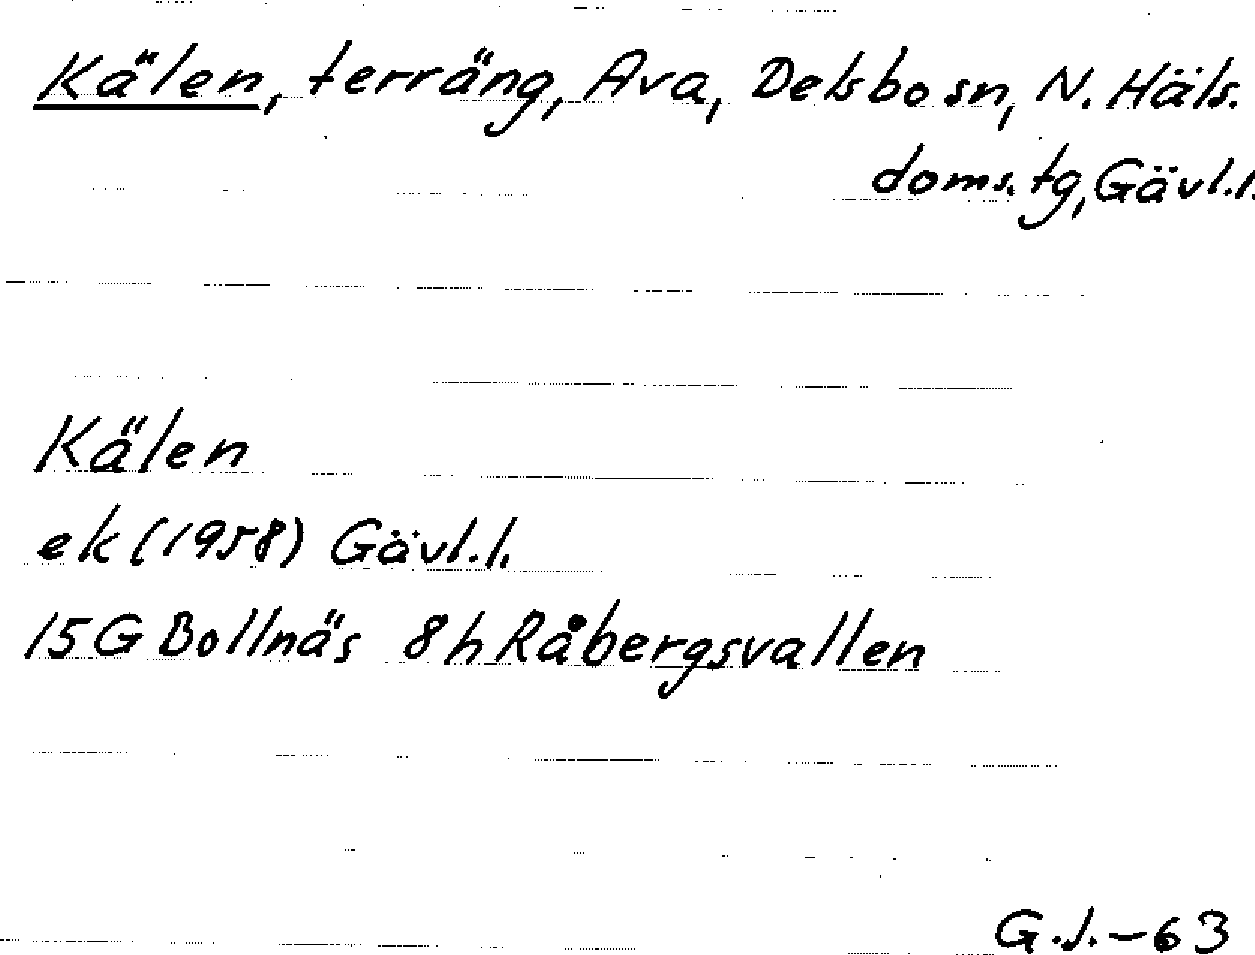 Kälen, terräng, Ava, Delsbo sn, N. Häls.
doms. tg, Gävl.l.
Kälen
ek (1958) Gävl.l.
15G Bollnäs 8h Råbergsvallen
G.J.-63